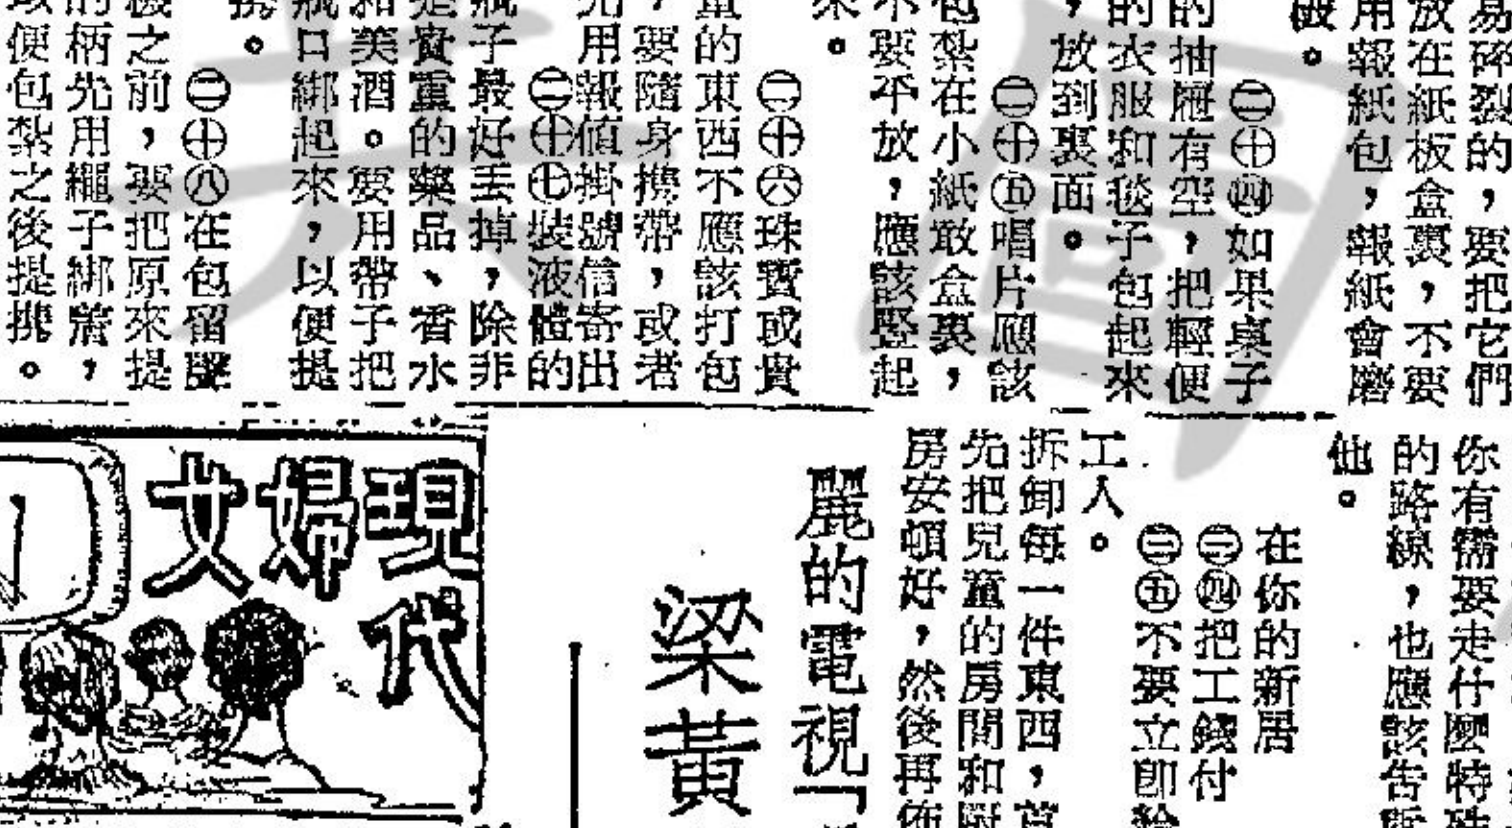 易碎裂的，要把它們
放在紙板盒裏，不要
用報紙包，報紙會磨
破。
㊁㊉㊃如果桌子
的抽屜有空，把輕便
的衣服和毯子包起來
，放到裏面。
㊁㊉㊄唱片應該
包紮在小紙敢盒裏，
不要平放，應該竪起
來。
㊁㊉㊅珠寶或貴
重的東西不應該打包
，要隨身携帶，或者
先用報值掛號信寄出
㊁㊉㊆裝液體的
瓶子最好丟掉，除非
是貴重的藥品、香水
和美酒。要用帶子把
瓶口綁起來，以便提
携。
㊁㊉㊇在包留聲
機之前，要把原來提
的柄先用繩子綁着，
以便包紮之後提携。
你有需要走什麼特殊
的路線，也應該告訴
他。
在你的新居
㊂㊃把工錢付
㊂㊄不要立即給
工人。
拆卸每一件東西，首
先把兒童的房間和厨
房安頓好，然後再佈
麗的電視「
梁黃
現代
婦女